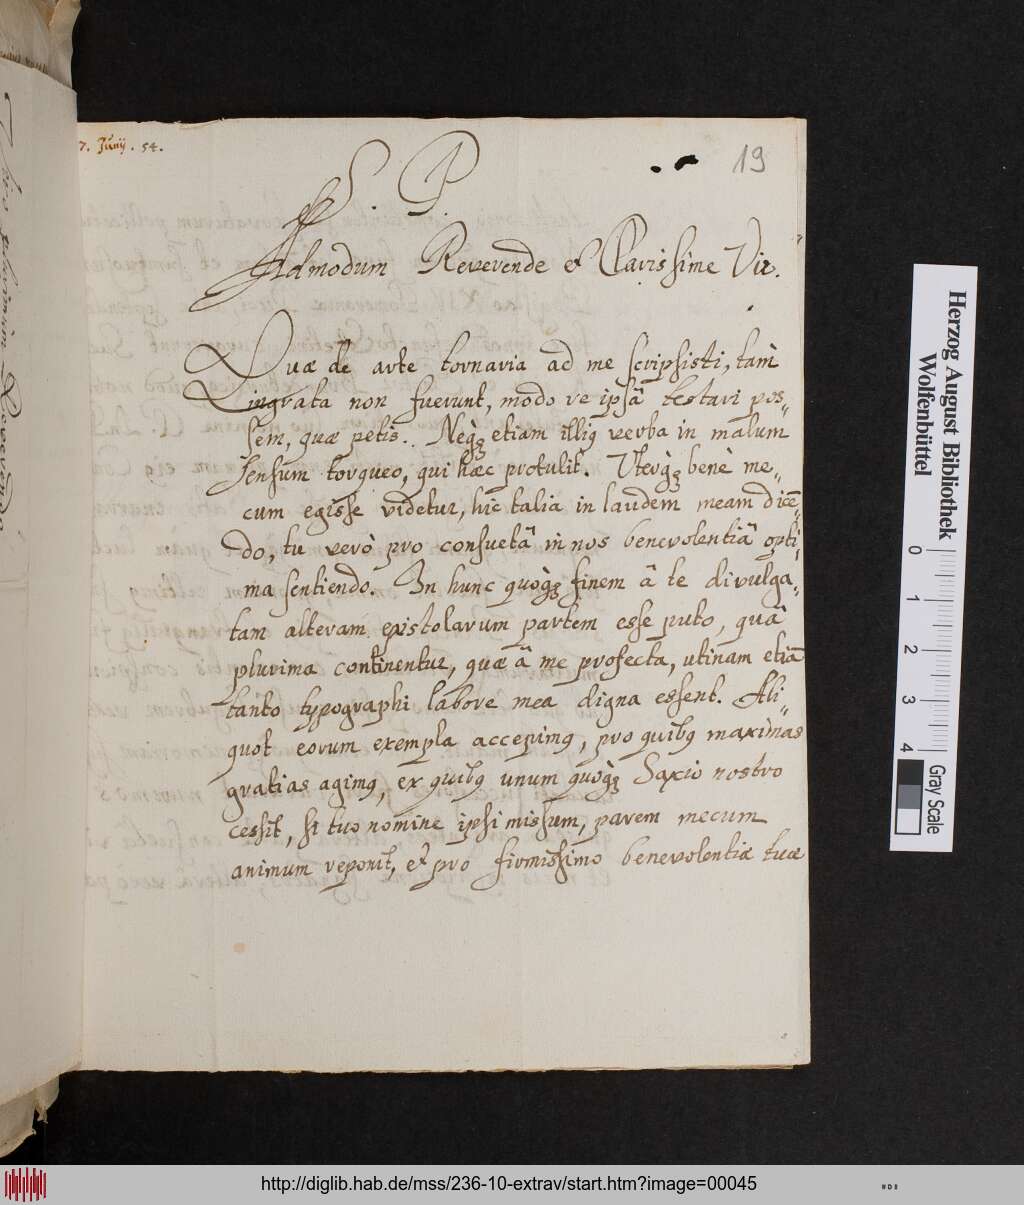 7. Junij. 54.
19
S. P.
Admodum Reverende et Clarissime Vir.
Quae de arte tornaria ad me scripsisti, tàm
ingrata non fuerunt, modo re ipsâ testari pos=
sem, quae petis. Neqꝫ etiam illiꝰ verba in malum
sensum torqueo, qui haec protulit. Uterqꝫ benè me=
cum egisse videtur, hic talia in laudem meam dicē=
do, tu verò pro consuetâ in nos benevolentiâ opti=
ma sentiendo. In hunc quoqꝫ finem â te divulga=
tam alteram epistolarum partem esse puto, quâ
plurima continentur, quae â me profecta, utinam etiā
tanto typographi labore mea digna essent. Ali=
quot eorum exempla accepimꝰ, pro quibꝰ maximas
gratias agimꝰ, ex quibꝰ unum quoqꝫ Saxio nostro
cessit, si tuo nomine ipsi missum, parem mecum
animum reponit, et pro firmissimo benevolentiae tuae
Herzog August Bibliothek
Wolfenbüttel
0 1 2 3 4
Gray Scale
http://diglib.hab.de/mss/236-10-extrav/start.htm?image=00045